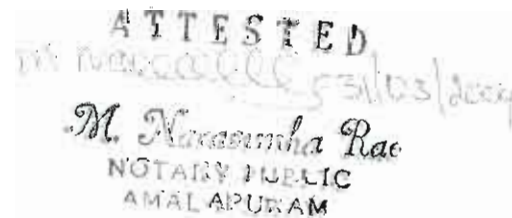 ATTESTED
M. Narasimha Rao
NOTARY PUBLIC
AMALAPURAM